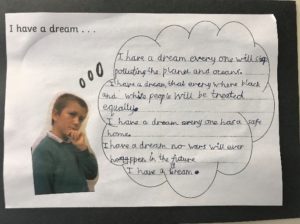 I have a dream . . .
I have a dream every one will stop
polluting the planet and oceans.
I have a dream that every where black
and white people will be treated
equally.
I have a dream every one has a safe
home.
I have a dream no wars will ever
happen in the future
I have a dream.